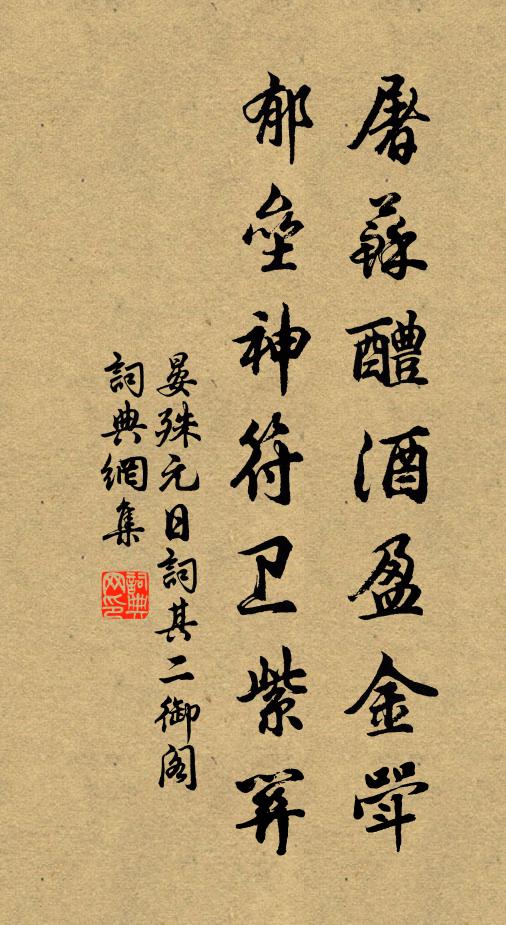 屠蘇醴酒盈金斝
郁垒神符卫紫關
晏殊元日詞其二御閣
詞典網集
詞典网印